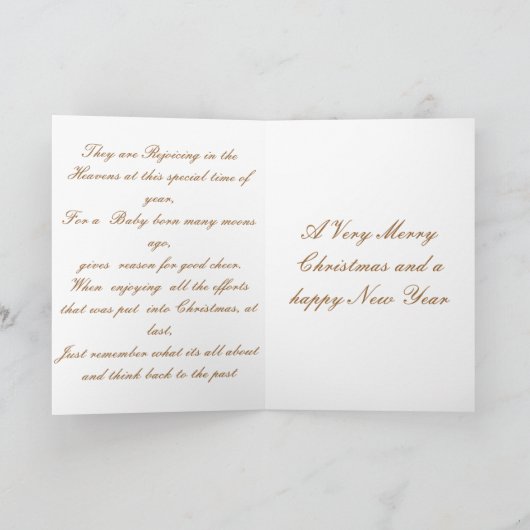 They are Rejoicing in the
Heavens at this special time of
year,
For a Baby born many moons
ago,
gives reason for good cheer.
When enjoying all the efforts
that was put into Christmas, at
last,
Just remember what its all about
and think back to the past
A Very Merry
Christmas and a
happy New Year